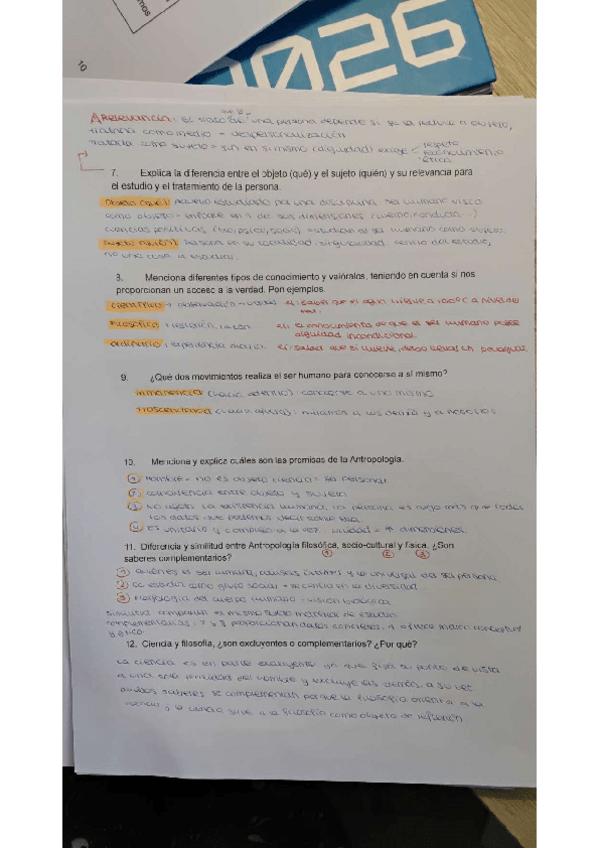 2026
10
Relevancia: el modo de una persona depende si se la reduce a objeto,
tratarla como medio = despersonalización
Tratarla como sujeto = fin en si mismo (dignidad) exige < respeto
reconocimiento
ética
7. Explica la diferencia entre el objeto (qué) y el sujeto (quién) y su relevancia para
el estudio y el tratamiento de la persona.
Objeto (qué): aquello estudiado por una disciplina. Ser humano visto
como objeto = enfoque en 1 de sus dimensiones
ciencias positivas (bio, psico, socio) estudian al ser humano como objeto.
Sujeto (quién): persona en su totalidad, singularidad, centro del estudio,
no una cosa
8. Menciona diferentes tipos de conocimiento y valóralos, teniendo en cuenta si nos
proporcionan un acceso a la verdad. Pon ejemplos.
Científico → observación ej: saber que el agua hierve a 100°C a nivel del
mar.
Filosófico: reflexión, razón. ej: el conocimiento de que el ser humano posee
dignidad incondicional.
ordinario: experiencia ej: saber que si llueve, debo llevar un paraguas
9. ¿Qué dos movimientos realiza el ser humano para conocerse a sí mismo?
inmanencia (hacia adentro): conocerse a uno mismo
trascendencia (hacia afuera): mirarnos a los demás y a nosotros
10. Menciona y explica cuáles son las premisas de la Antropología.
1 hombre = no es objeto ciencia = es persona
2 concurrencia entre objeto y sujeto
3 No agota la existencia humana, la persona es algo más que todos
los datos que podemos decir sobre ella.
4 Es unitario y complejo a la vez. unidad = dimensiones.
11. Diferencia y similitud entre Antropología filosófica, socio-cultural y física. ¿Son
saberes complementarios?
1 2 3
1 quién es el ser humano, causas últimas y lo universal del ser persona
2 lo estudia como grupo social = se centra en la diversidad
3 Morfología del cuerpo humano = visión biológica
similitud comparten el mismo sujeto material de estudio
complementarias: 2 y 3 proporcionan datos concretos, 1 ofrece marco conceptual
y ético.
12. Ciencia y filosofía, ¿son excluyentes o complementarios? ¿Por qué?
La ciencia es en parte excluyente ya que fija su punto de vista
a una sola realidad del hombre y excluye las demás, a su vez
ambos saberes se complementan porque la filosofía orienta a la
ciencia y la ciencia sirve a la filosofía como objeto de reflexión